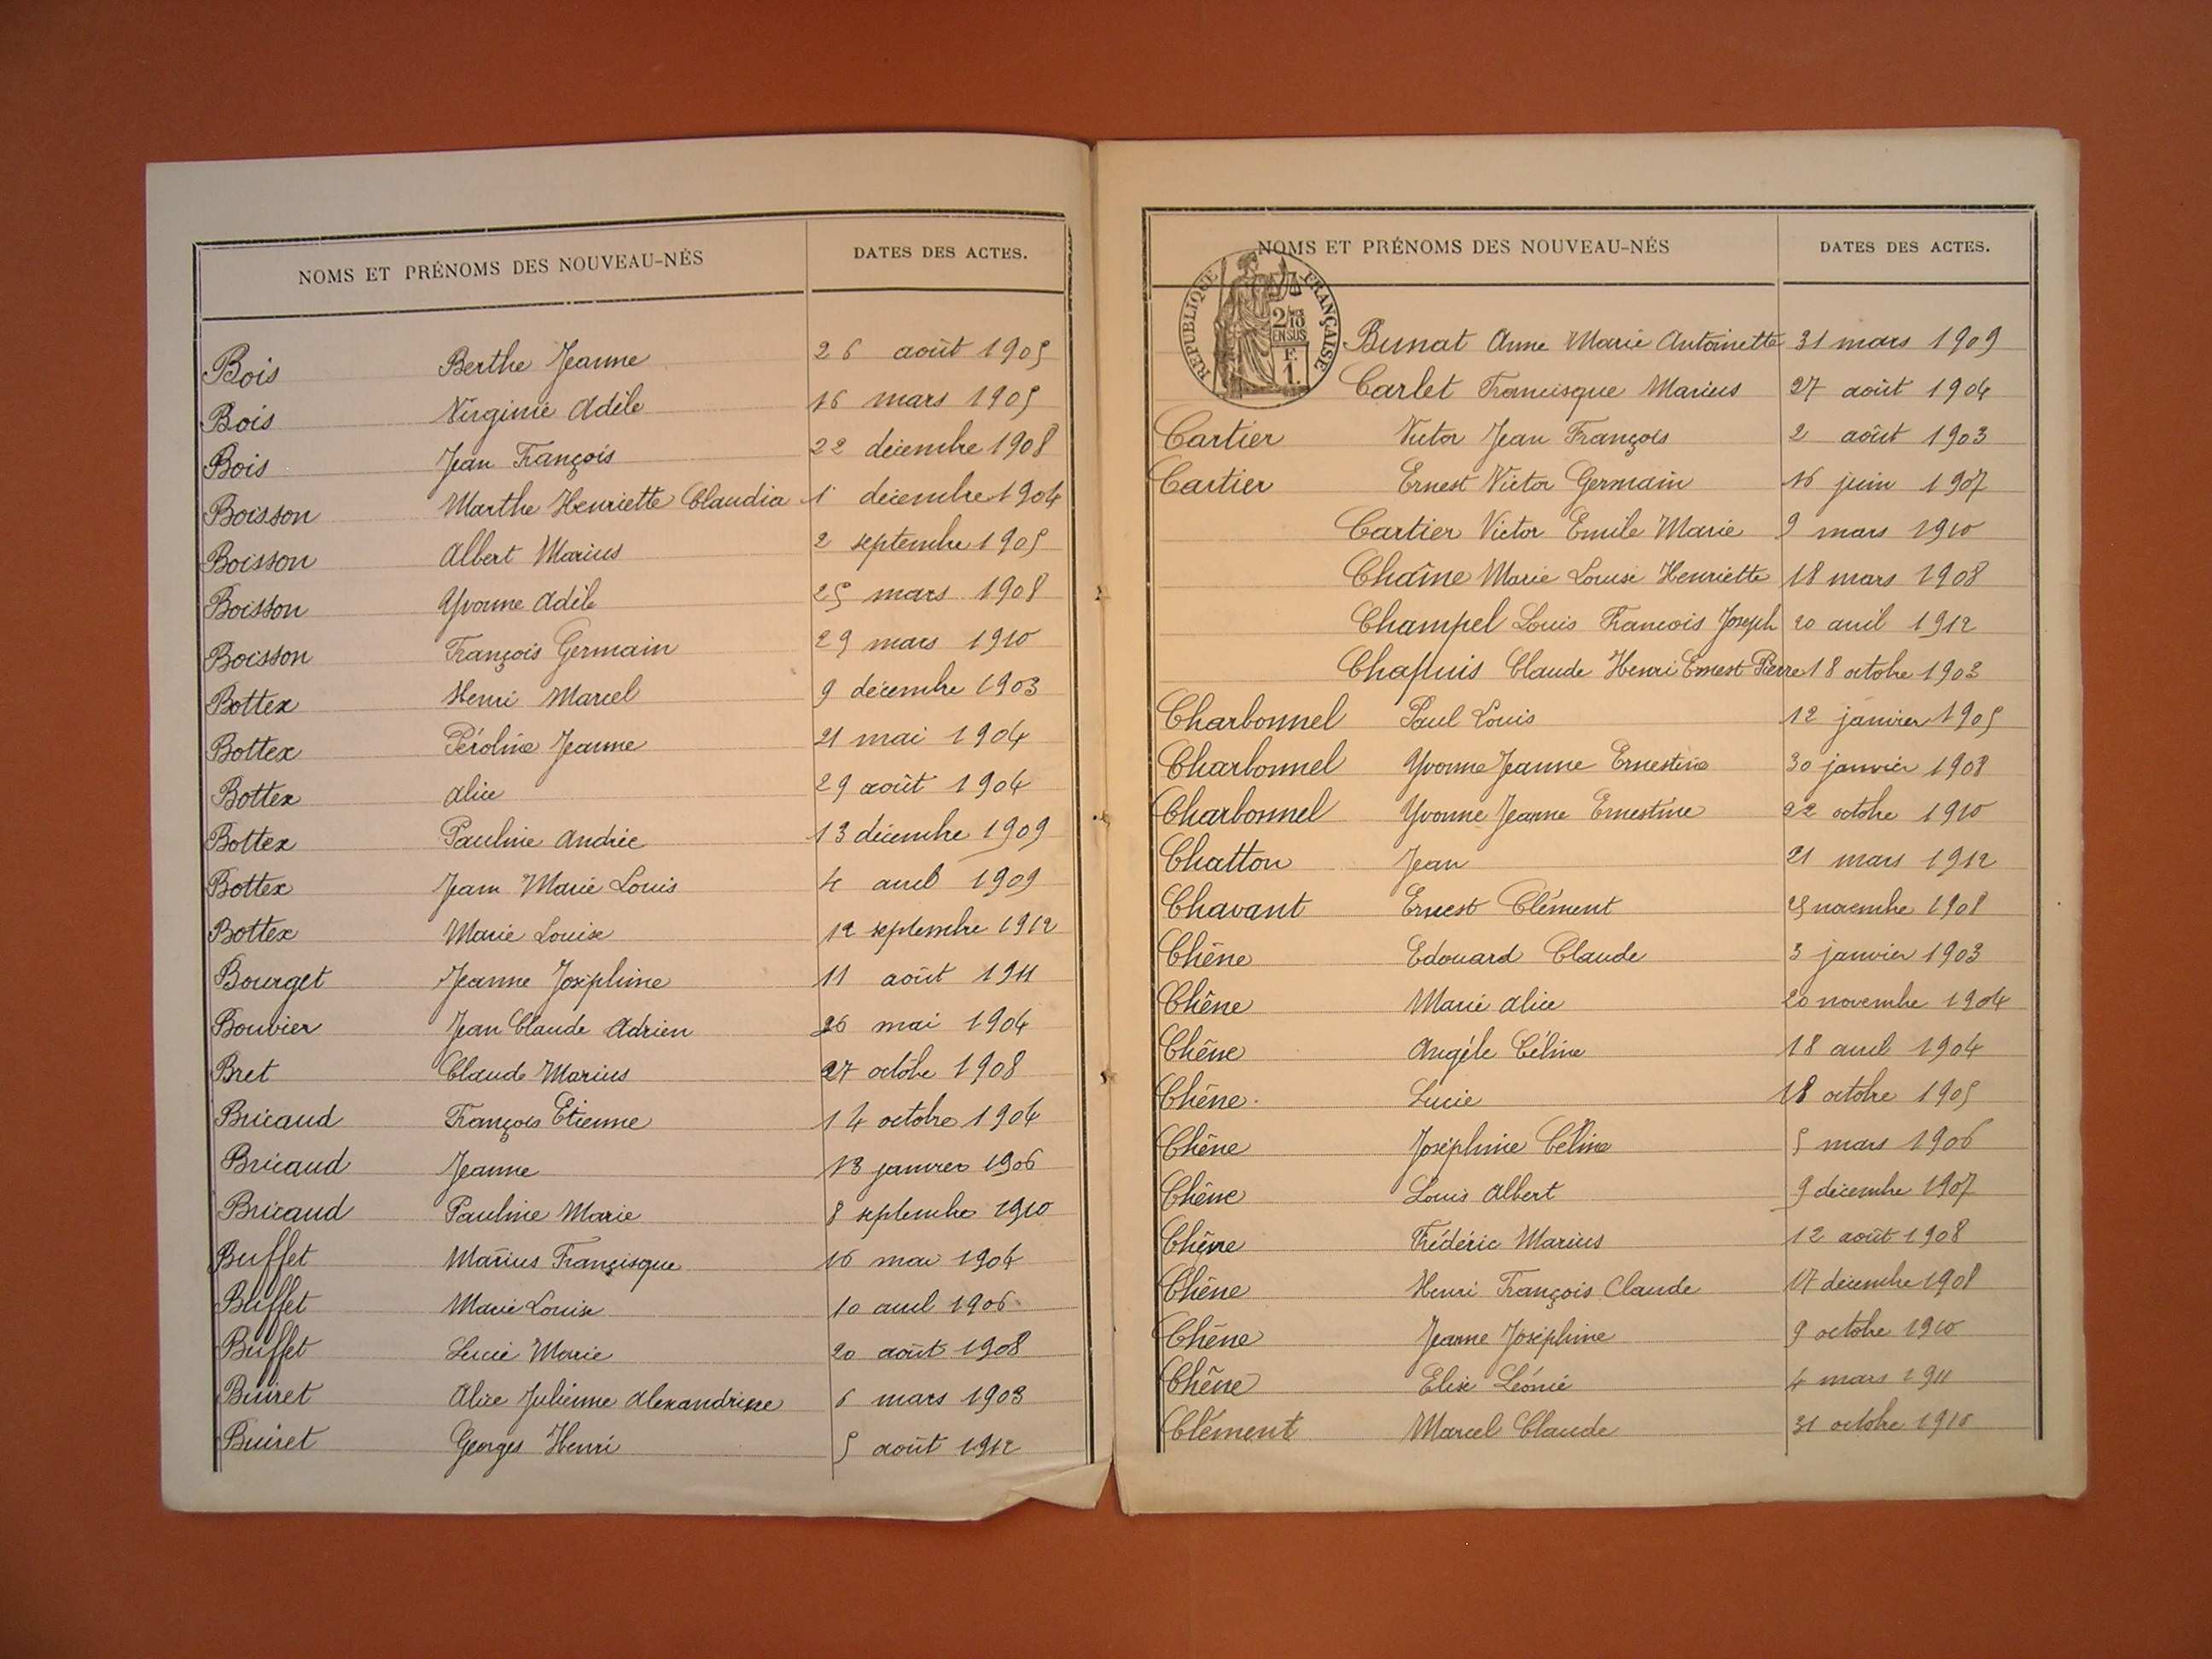 NOMS ET PRÉNOMS DES NOUVEAU-NÉS DATES DES ACTES.
Bois Berthe Jeanne 26 août 1905
Bois Virginie Adèle 16 mars 1905
Bois Jean François 22 décembre 1908
Boisson Marthe Henriette Claudia 1 décembre 1904
Boisson Albert Marius 2 septembre 1905
Boisson Yvonne Adèle 25 mars 1908
Boisson François Germain 29 mars 1910
Bottex Henri Marcel 9 décembre 1903
Bottex Péroline Jeanne 21 mai 1904
Bottex Alice 29 août 1904
Bottex Pauline Andrée 13 décembre 1909
Bottex Jean Marie Louis 4 avril 1909
Bottex Marie Louise 12 septembre 1912
Bourget Jeanne Joséphine 11 août 1911
Bouvier Jean Claude Adrien 26 mai 1904
Bret Claude Marius 27 octobre 1908
Bricaud François Etienne 14 octobre 1904
Bricaud Jeanne 13 janvier 1906
Bricaud Pauline Marie 8 septembre 1910
Buffet Marius Françisque 16 mai 1904
Buffet Marie Louise 10 avril 1906
Buffet Lucie Marie 20 août 1908
Buiret Alice Julienne Alexandrine 6 mars 1903
Buiret Georges Henri 5 août 1912
NOMS ET PRÉNOMS DES NOUVEAU-NÉS DATES DES ACTES.
RÉPUBLIQUE FRANÇAISE
2/10
EN SUS
F.
1.
Bunat Anne Marie Antoinette 31 mars 1909
Carlet Francisque Marius 27 août 1904
Cartier Victor Jean François 2 août 1903
Cartier Ernest Victor Germain 16 juin 1907
Cartier Victor Emile Marie 9 mars 1910
Chaîne Marie Louise Henriette 18 mars 1908
Champel Louis François Joseph 20 avril 1912
Chapuis Claude Henri Ernest Pierre 18 octobre 1903
Charbonnel Paul Louis 12 janvier 1905
Charbonnel Yvonne Jeanne Ernestine 30 janvier 1908
Charbonnel Yvonne Jeanne Ernestine 22 octobre 1910
Chatton Jean 21 mars 1912
Chavant Ernest Clément novembre 1908
Chêne Edouard Claude 3 janvier 1903
Chêne Marie Alice 20 novembre 1904
Chêne Angèle Céline 18 avril 1904
Chêne Lucie 18 octobre 1905
Chêne Joséphine Céline 5 mars 1906
Chêne Louis Albert 9 décembre 1907
Chêne Frédéric Marius 12 août 1908
Chêne Henri François Claude 17 décembre 1908
Chêne Jeanne Joséphine 9 octobre 1910
Chêne Elise Léonie 4 mars 1911
Clément Marcel Claude 31 octobre 1910